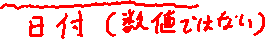 日付(数値ではない)